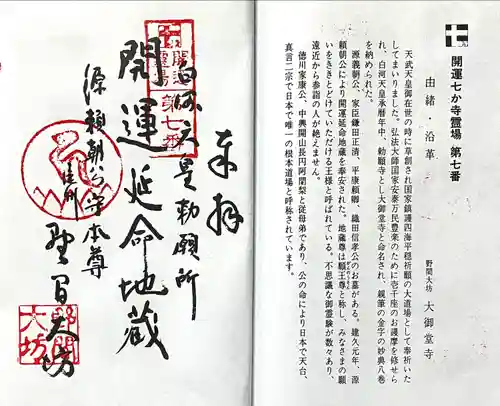 開運七か寺霊場 第七番
由緒・沿革
野間大坊 大御堂寺
天武天皇御在世の時に草創され国家鎮護四海平穏祈願の大道場として奉祈いた
してまいりました。弘法大師国家安泰万民豊楽のために壱千座のお護摩を修せら
れ、白河天皇承暦年中、勅願寺とし大御堂寺と命名され、親筆の金字の妙典八巻
を納められた。
源義朝公、家臣鎌田正清、平康頼卿、織田信孝公のお墓がある。建久元年、源
頼朝公により開運延命地蔵を奉安された。地蔵尊は願王尊と称し、みなさまの願
いをきとどけていただける王様と呼ばれている。不思議な御霊験が数々あり、
遠近から参詣の人が絶えません。
徳川家康公、中興開山長円阿闍梨と従母弟であり、公の命により日本で天台、
真言二宗で日本で唯一の根本道場と呼称されています。
奉拝
白河天皇勅願所
開運延命地蔵
源頼朝公守本尊
野間大坊
開運
霊場
第七番
野間
大坊